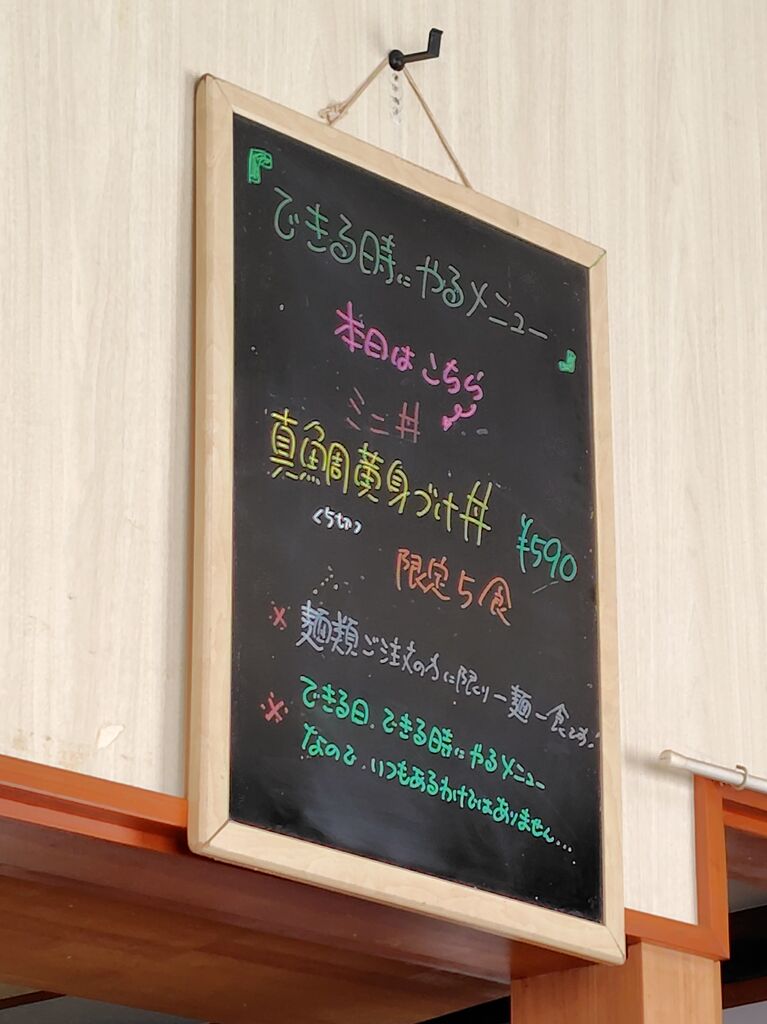 『できる時にやるメニュー』
本日はこちら
ミニ丼
真鯛黄身づけ丼
¥590
限定5食
※麺類ご注文の方に限り一麺一食です!
※できる日、できる時にやるメニュー
なので、いつもあるわけではありません...